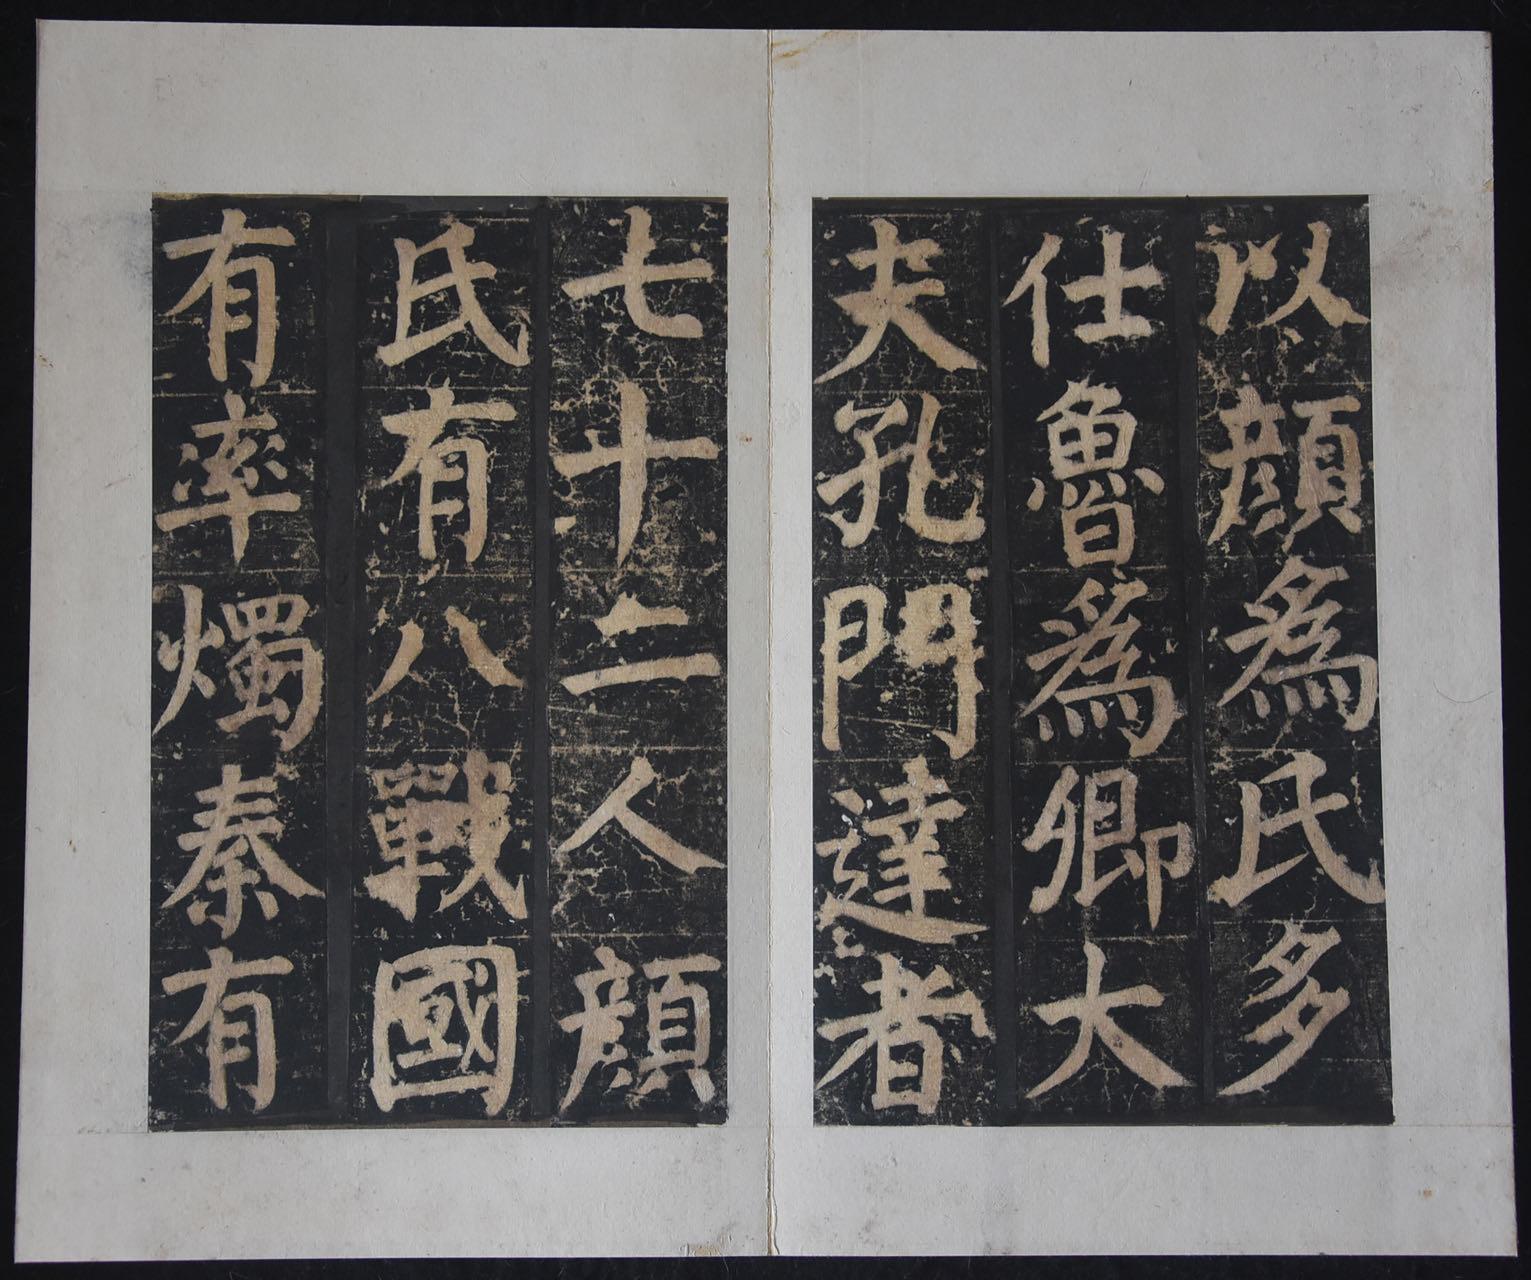 以顔為氏多
仕魯為卿大
夫孔門達者
七十二人顔
氏有八戰國
有率燭秦有